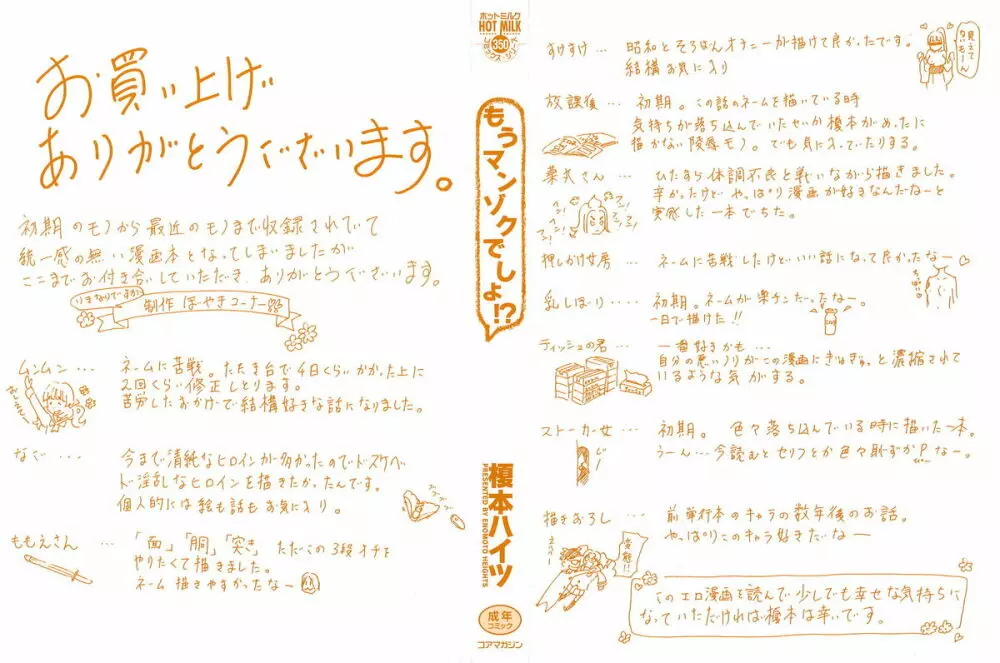 お買い上げ
ありがとうございます。
初期のモノから最近のモノまで収録されていて
統一感の無い漫画本となってしまいましたが
ここまでお付き合いしていただき、ありがとうございます。
いきなりですが
制作ぼやきコーナー
ムンムン…
ネームに苦戦。たたき台で4日くらいかかった上に
2回くらい修正しとります。
苦労したおかげで結構好きな話になりました。
なご…
今まで清純なヒロインが多かったのでドスケベ
ド淫乱なヒロインを描きたかったんです。
個人的には絵も話もお気に入り。
ももえさん…
「面」「胴」「突き」ただこの3段オチを
やりたくて描きました。
ネーム描きやすかったなー
ホットミルク
HOT MILK
コミックスシリーズ
360
もうマンゾクでしょ!?
榎本ハイツ
PRESENTED BY ENOMOTO HEIGHTS
成年
コミック
コアマガジン
すけすけ…
昭和とそろばんオナニーが描けて良かったです。
結構お気に入り
見えて
ないもーん
放課後…
初期。この話のネームを描いている時
気持ちが落ち込んでいたせいか榎本がめったに
描かない陵辱モノ。でも気に入っていたりする。
菜衣さん…
ひたすら体調不良と戦いながら描きました。
辛かったけどやっぱり漫画が好きなんだなーと
実感した一本でもした。
押しかけ女房…
ネームに苦戦したけどいい話になって良かったなー
乳しぼり…
初期。ネームが楽チンだったなー。
一日で描けた!!
ティッシュの君…
一番好きかも…
自分の悪いノリがこの漫画にぎゅぎゅっと濃縮されて
いるような気がする。
ストーカー女…
初期。色々落ち込んでいる時に描いた一本。
うーん…今読むとセリフとか色々恥ずかPなー。
じー
描きおろし…
前単行本のキャラの数年後のお話。
やっぱりこのキャラ好きだなー
変態!!
このエロ漫画を読んで少しでも幸せな気持ちに
なっていただければ榎本は幸いです。